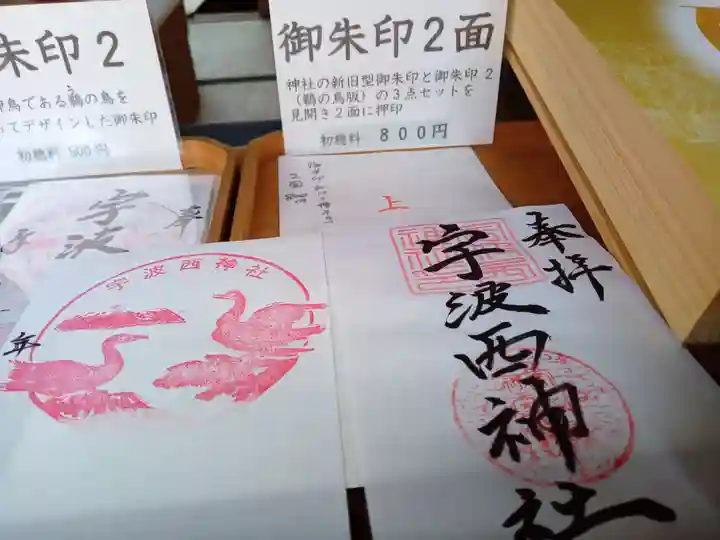 朱印2
神鳥である鵜の鳥を
ってデザインした御朱印
初穂料 500円
御朱印2面
神社の新旧型御朱印と御朱印2
(鵜の鳥版)の3点セットを
見開き2面に押印
初穂料 800円
上
宇波
奉
年
宇波西神社
奉拝
宇波西神社